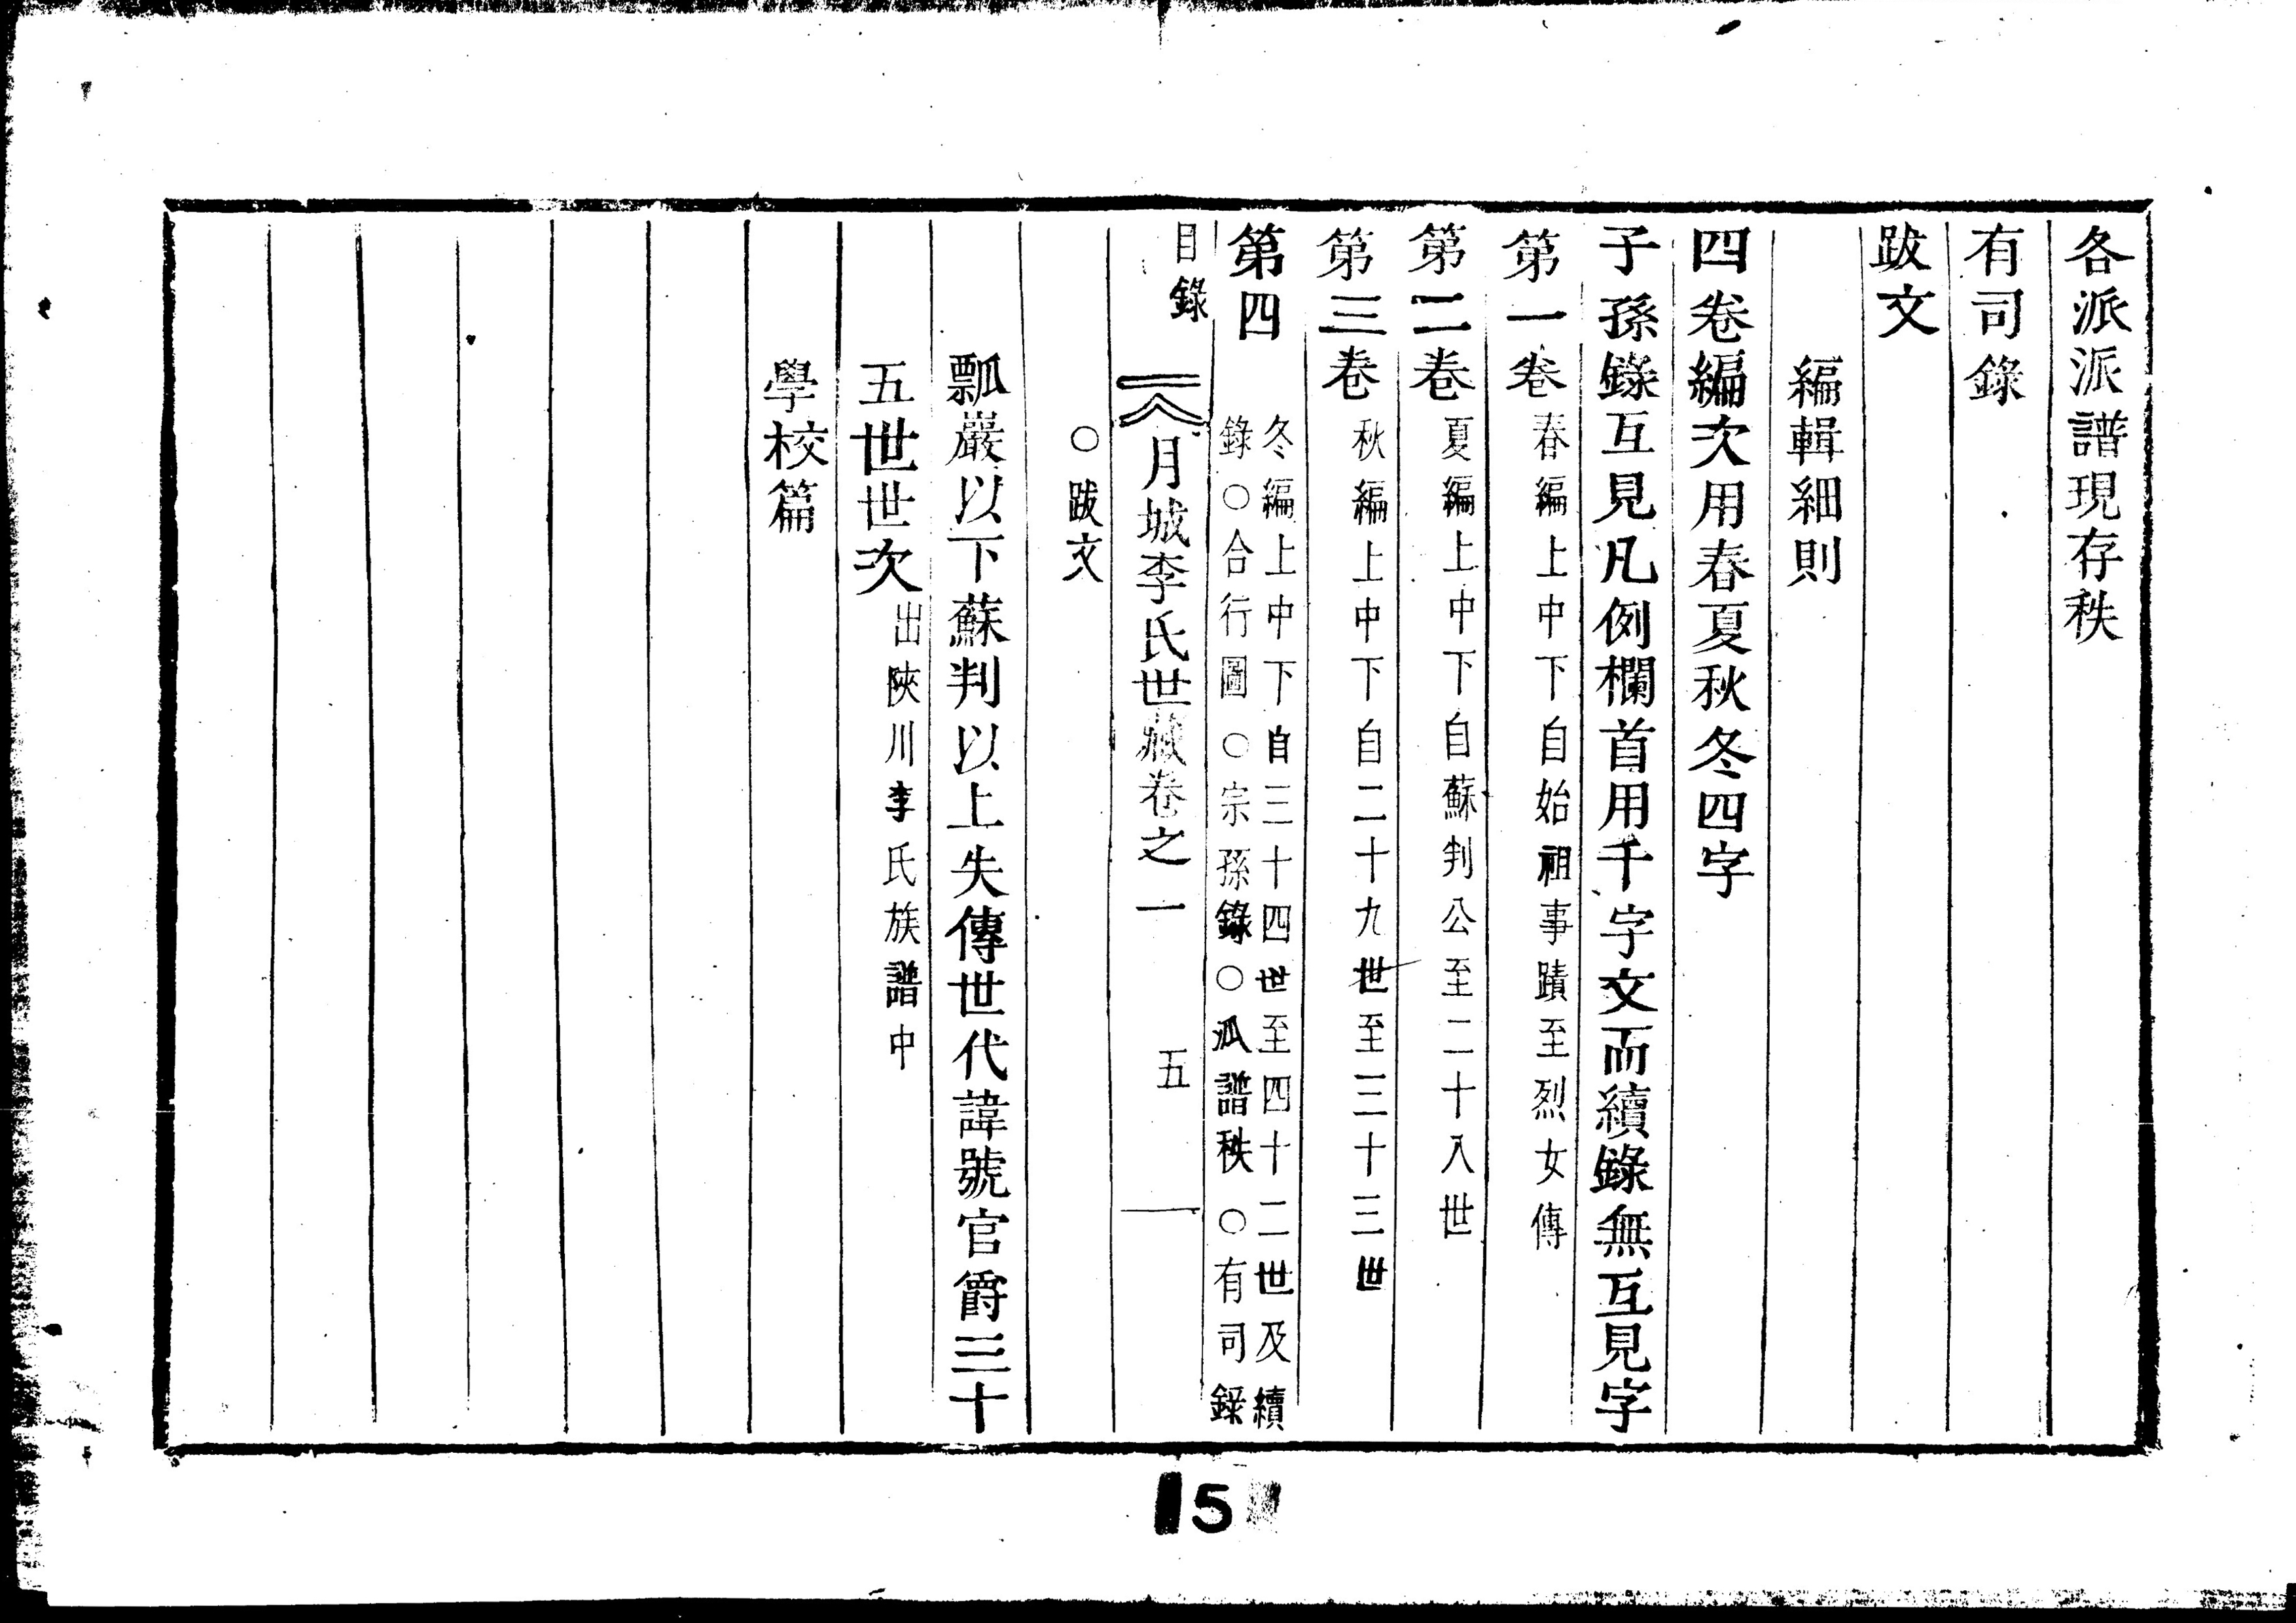 各派派譜現存秩
有司錄
跋文
編輯細則
四卷編次用春夏秋冬四字
子孫錄互見凡例欄首用千字文而續錄無互見字
第一卷 春編上中下自始祖事蹟至烈女傳
第二卷 夏編上中下自蘇判公至二十八世
第三卷 秋編上中下自二十九世至三十三世
第四 冬編上中下自三十四世至四十二世及續
錄○合行圖○宗孫錄○派譜秩○有司錄
目錄 月城李氏世藏卷之一 五
○跋文
瓢巖以下蘇判以上失傳世代諱號官爵三十
五世世次 出陜川李氏族譜中
學校篇
5